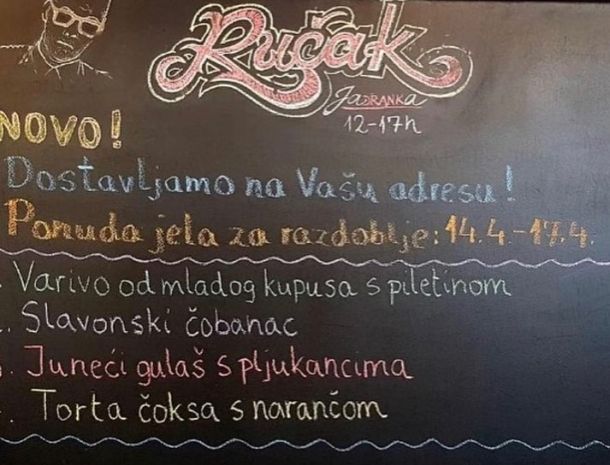 Ručak
Jadranka
12-17h
NOVO!
Dostavljamo na Vašu adresu!
Ponuda jela za razdoblje: 14.4.-17.4.
Varivo od mladog kupusa s piletinom
Slavonski čobanac
Juneći gulaš s pljukancima
Torta čoksa s narančom